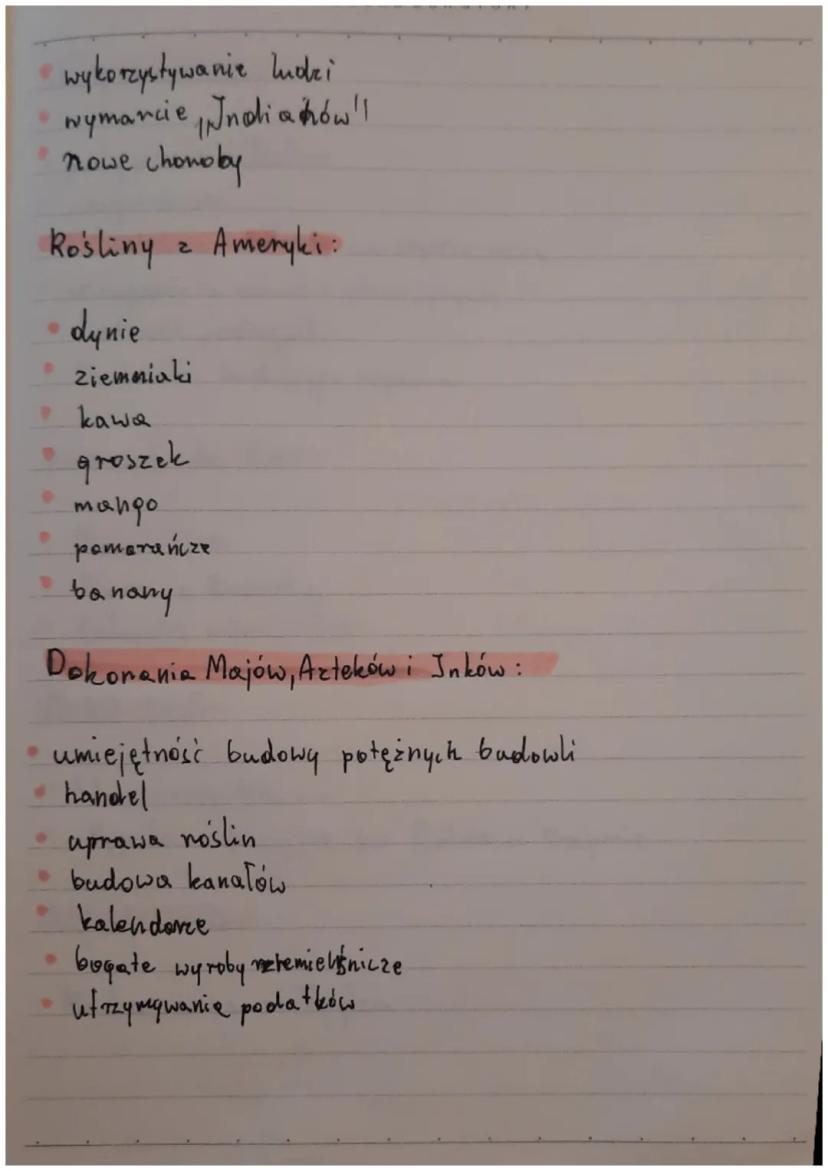 • wykorzystywanie ludzi
• wymarcie „Indianów"
• nowe choroby
Rośliny z Ameryki:
• dynie
• ziemniaki
• kawa
• groszek
• mango
• pomarańcze
• banany
Dokonania Majów, Azteków i Inków:
• umiejętność budowy potężnych budowli
• handel
• uprawa roślin
• budowa kanałów
• kalendarze
• bogate wyroby rzemieślnicze
• utrzymywanie podatków